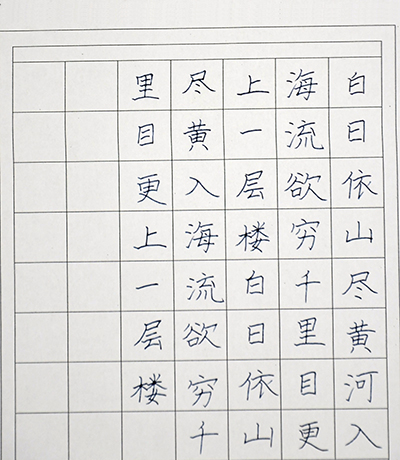 白日依山尽黄河入
海流欲穷千里目更
上一层楼白日依山
尽黄入海流欲穷千
里目更上一层楼